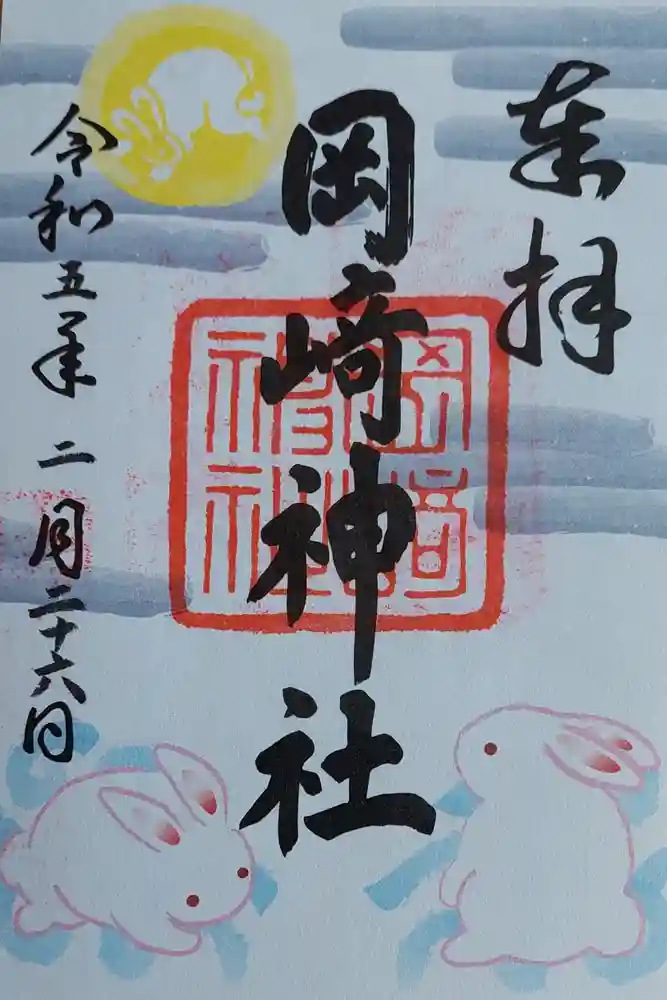 奉拝
岡崎神社
岡崎神社
令和五年二月二十六日